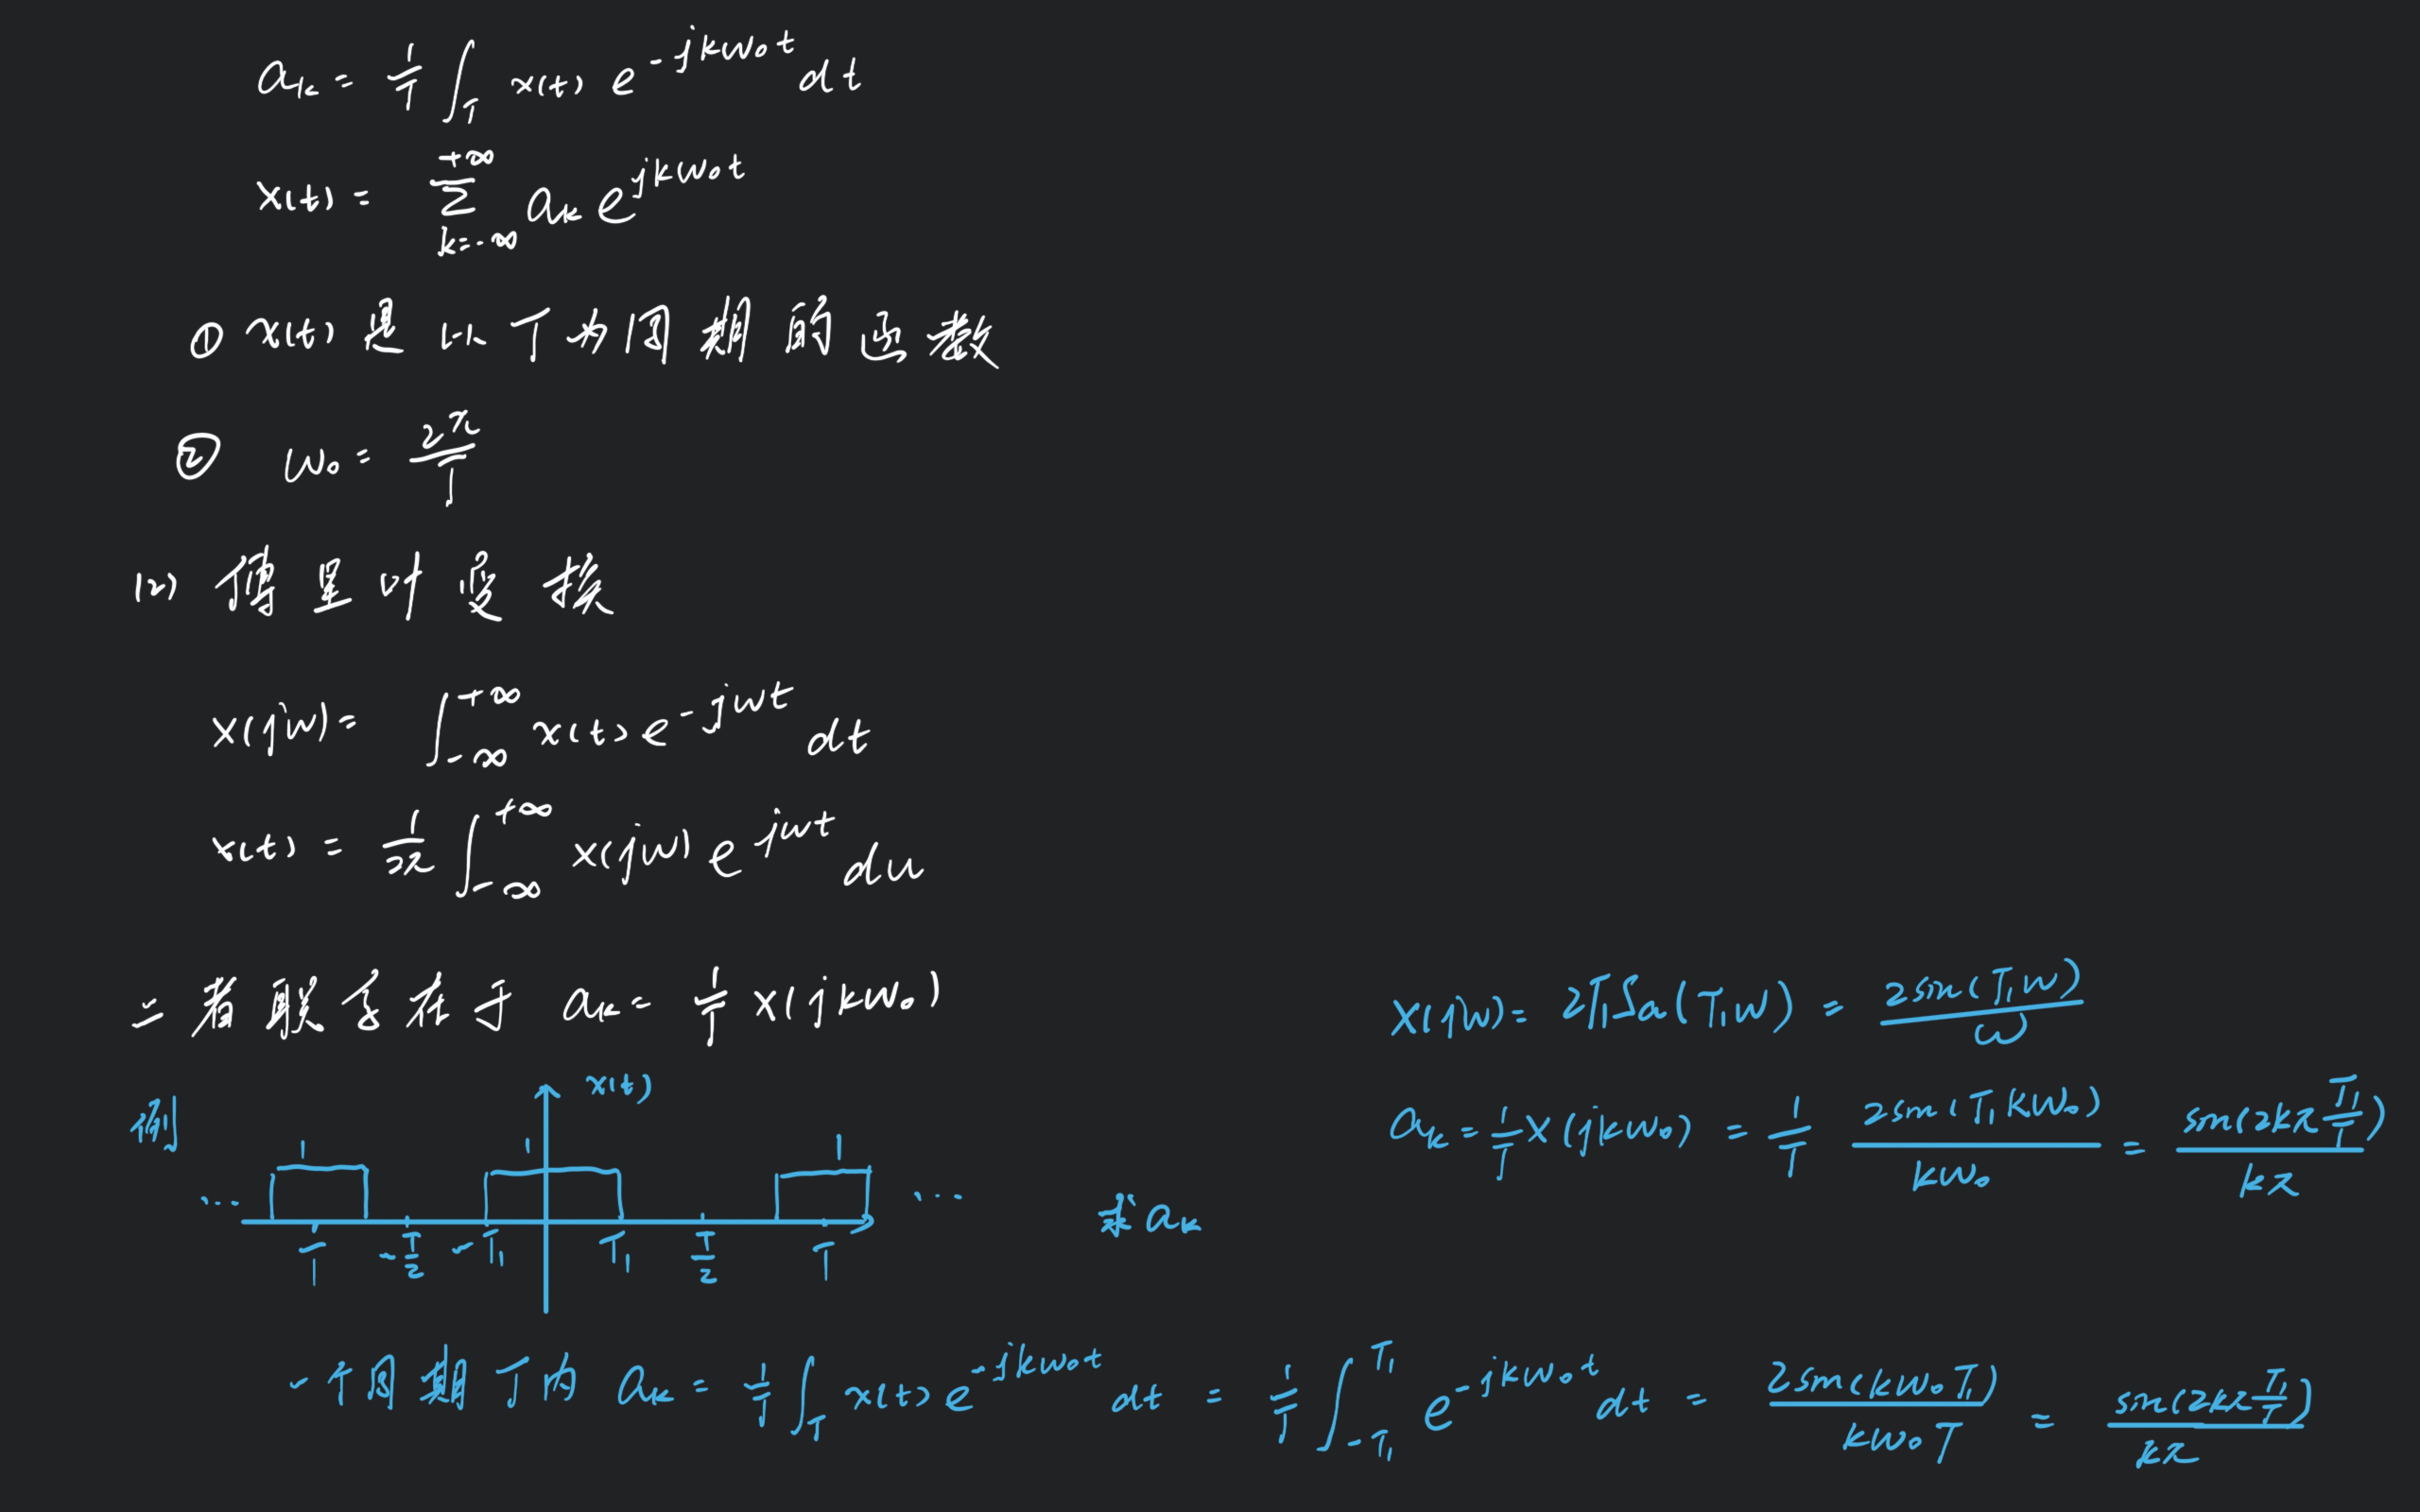 aₖ = 1/T ∫_T x(t) e^{-jkw₀t} dt
x(t) = Σ_{k=-∞}^{+∞} aₖ e^{jkw₀t}
① x(t) 是以 T 为周期的函数
② w₀ = 2π/T
(2) 傅里叶变换
X(jw) = ∫_{-∞}^{+∞} x(t) e^{-jwt} dt
x(t) = 1/2π ∫_{-∞}^{+∞} X(jw) e^{jwt} dw
二者联系在于 aₖ = 1/T X(jkw₀)
X(jw) = 2T₁Sa(T₁w) = 2sin(T₁w)/ω
aₖ = 1/T X(jkw₀) = 1/T 2sin(T₁kw₀)/kw₀ = sin(2kπ T₁/T)/kπ
例
x(t)
1 1 1
... ...
T -T/2 -T₁ T₁ T/2 T
求 aₖ
一个周期 T 内 aₖ = 1/T ∫_T x(t) e^{-jkw₀t} dt = 1/T ∫_{-T₁}^{T₁} e^{-jkw₀t} dt = 2sin(kw₀T₁)/kw₀T = sin(2kπ T₁/T)/kπ